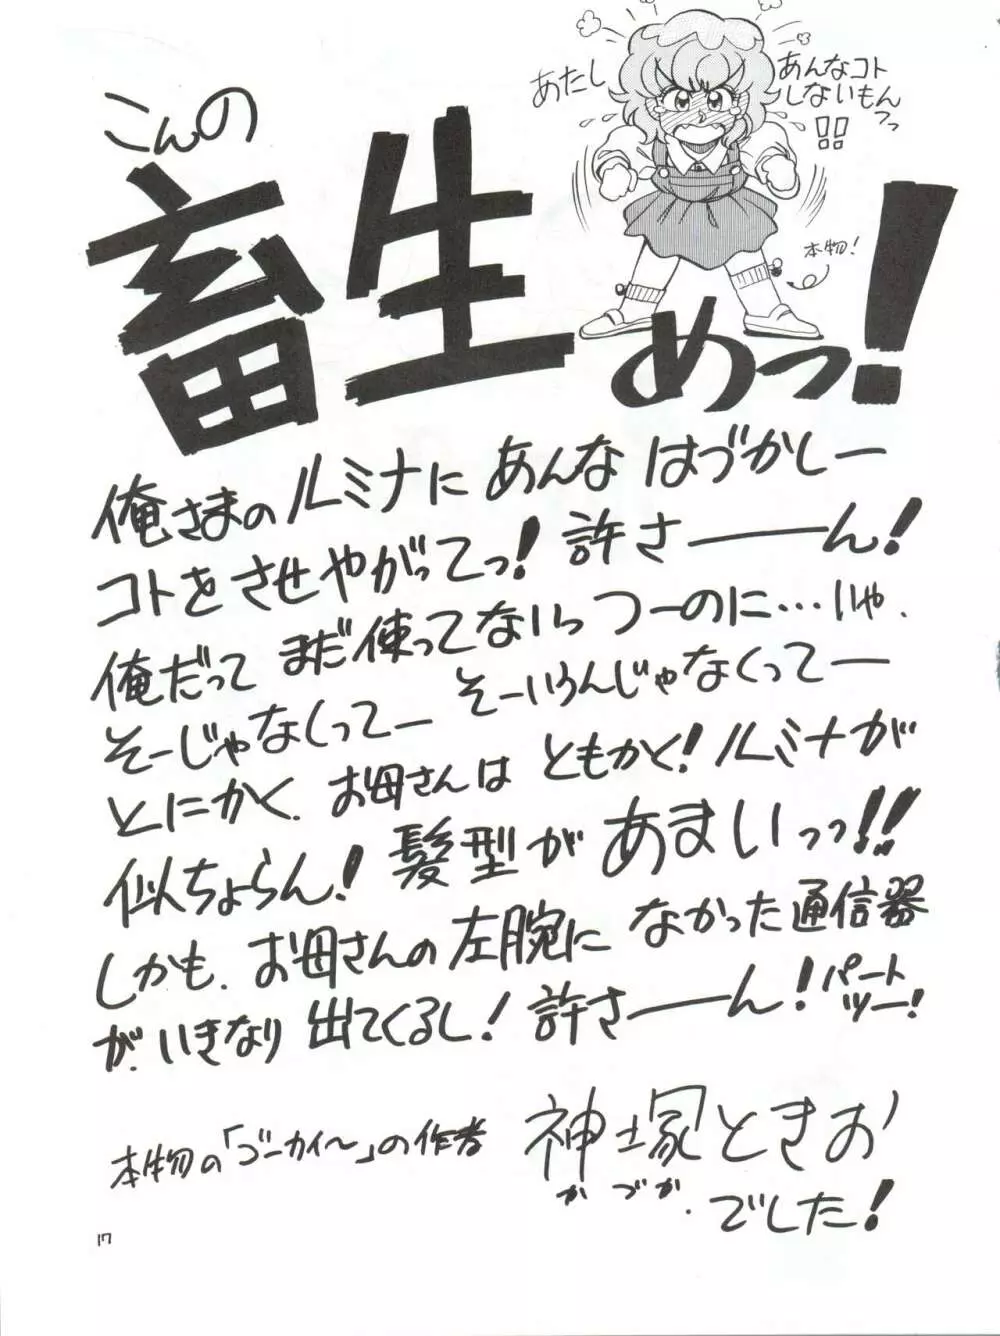 こんの
畜生
めっ!
あたし
あんなコト
しないもん
っっ
!!
本物!
俺さまのルミナに あんな はづかしー
コトをさせやがってっ! 許さーーん!
俺だって まだ使ってないっつーのに…いや、
そーじゃなくってー そーいうんじゃなくってー
とにかく、お母さんは ともかく! ルミナが
似ちょらん! 髪型が あまいっっ!!
しかも、お母さんの左腕に なかった通信器
が、いきなり 出てくるし! 許さーーん! パート
ツー!
本物の「ゴーカイ〜」の作者
神塚ときお
かづか
でした!
17